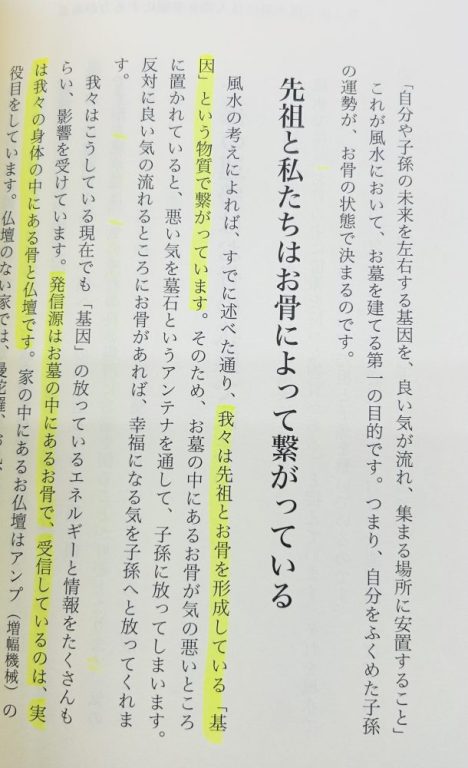 「自分や子孫の未来を左右する基因を、良い気が流れ、集まる場所に安置すること」
これが風水において、お墓を建てる第一の目的です。つまり、自分をふくめた子孫
の運勢が、お骨の状態で決まるのです。
先祖と私たちはお骨によって繋がっている
風水の考えによれば、すでに述べた通り、我々は先祖とお骨を形成している「基
因」という物質で繋がっています。そのため、お墓の中にあるお骨が気の悪いところ
に置かれていると、悪い気を墓石というアンテナを通して、子孫に放ってしまいます。
反対に良い気の流れるところにお骨があれば、幸福になる気を子孫へと放ってくれま
す。
我々はこうしている現在でも「基因」の放っているエネルギーと情報をたくさんも
らい、影響を受けています。発信源はお墓の中にあるお骨で、受信しているのは、実
は我々の身体の中にある骨と仏壇です。家の中にあるお仏壇はアンプ（増幅機械）の
役目をしています。仏壇のない家では、